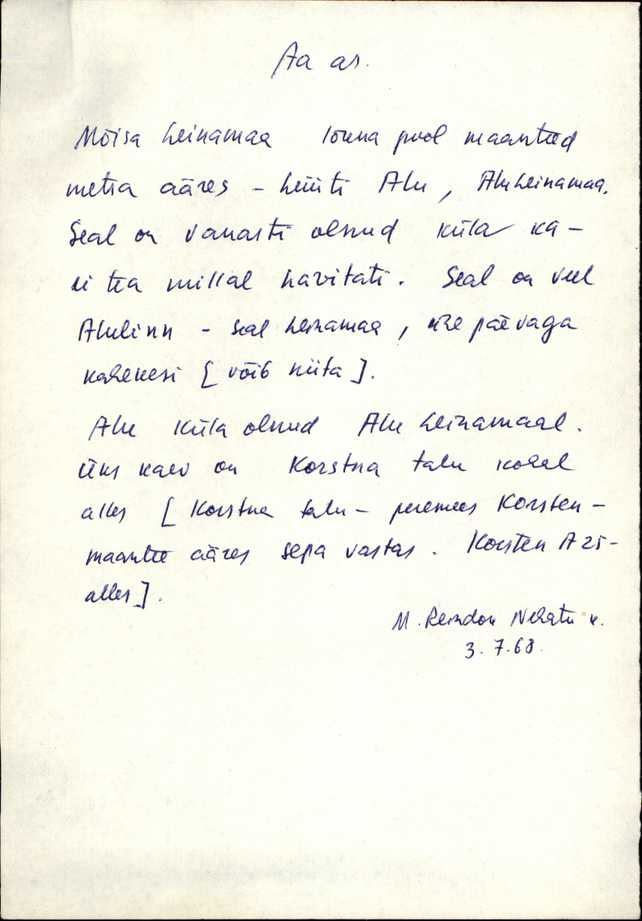 Aa as.
Mõisa heinamaa lõuna pool maanteed
metsa ääres – hüüti Alu, Aluheinamaa.
Seal on vanasti olnud küla ka –
ei tea millal hävitati. Seal on veel
Alulinn – seal heinamaa, ühe päevaga
kahekesi [võib niita].
Alu küla olnud Alu heinamaal.
üks kaev on Korstna talu kohal
alles [Korstna talu – peremees Korsten –
maantee ääres sepa vastas. Korsten
alles].
M. Reindon Nehatu k.
3.7.68.